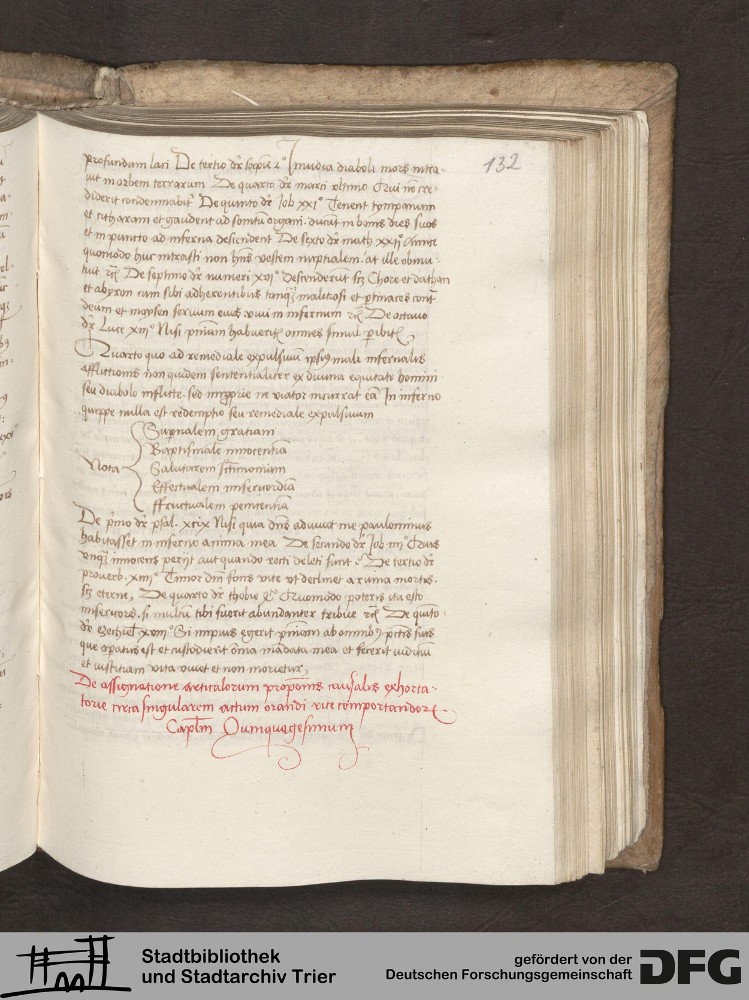 132
profundum laci De tertio dr̄ sapiē 2° Inuidia diaboli mors intra-
uit in orbem terrarum De quarto dr̄ marci vltimo Qui nō cre-
diderit condemnabit̄ De quinto dr̄ Job xxi° Tenent tympanum
et citharam et gaudent ad sonitū organi. ducūt in bonis dies suos
et in puncto ad inferna descendent De sexto dr̄ math xxii° Amice
quomodo huc intrasti non hn̄s vestem nuptialem. at ille obmu-
tuit rc̄ De septimo dr̄ numeri xvi° descenderūt scȝ Chore et dathan
et abyron cum sibi adherentibus tanqȝ malitiosi et ꝑtinaces cont̄
deum et moysen seruum eius viui in infernum rc̄ De octauo
dr̄ Luce xiii° Nisi pn̄iam habuerit̄ omnes simul ꝑibit̄
Quarto quo ad remediale expulsiuū ipsiꝰ mali infernalis
afflictionis non quidem sententialiter ex diuina equitate homini
seu diabolo inflicte. sed ne viator incurrat eā In inferno
quippe nulla est redemptio seu remediale expulsiuum
Nota
Supernalem gratiam
Baptismale innocentiā
Salutarem
Effectualem misericordiā
ffructualem penitentiā
De pͥmo dr̄ psal. xcix Nisi quia dn̄s adiuuit me paulominus
habitasset in inferno anima mea De secundo dr̄ Job iiii° Quis
vnqȝ innocens perijt aut quando recti deleti sunt De tertio dr̄
prouerb. xiiii° Timor dn̄i fons vite vt declinet a ruina mortis.
scȝ eterne, De quarto dr̄ thobie Quomodo poteris ita esto
misericors. si multū tibi fuerit abundanter tribue rc̄ De quīto
dr̄ ezechiel xviii° Si impius egerit pn̄iam ab omnibȝ pctīs suis
que oꝑatus est et custodierit oīa mādata mea et fecerit iudiciū
et iustitiam vita viuet et non morietur.
De assignatione articulorum exhorta-
torie circa singularem actum orandi rite comportandorꝫ
Caplm̄ Quinquagesimum
Stadtbibliothek
und Stadtarchiv Trier
gefördert von der
Deutschen Forschungsgemeinschaft
DFG